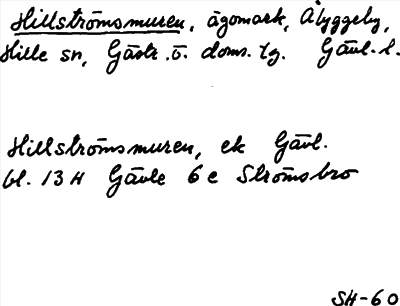 Hillströmsmuren, ägomark, Åbyggeby,
Hille sn, Gästr. ö. doms. tg. Gävl. l.
Hillströmsmuren, ek Gävl.
bl. 13 H Gävle 6 e Strömsbro
SH-60